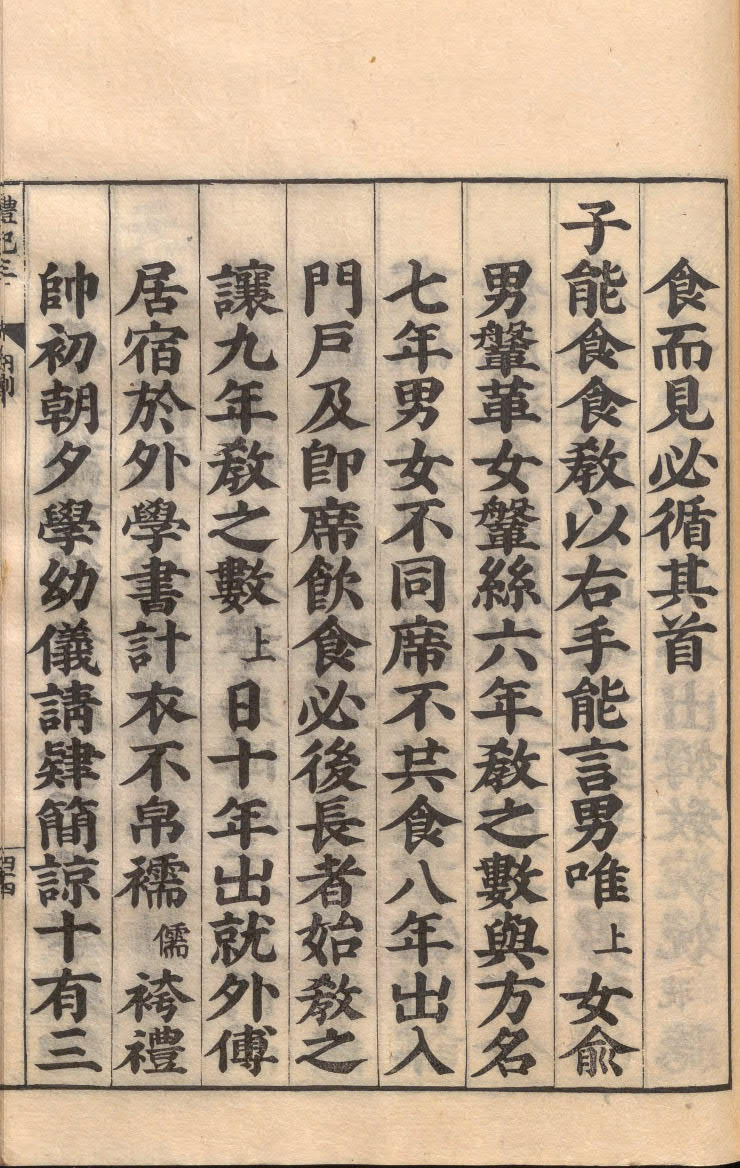 食而見必循其首
子能食食敎以右手能言男唯上女兪
男鞶革女鞶絲六年敎之數與方名
七年男女不同席不共食八年出入
門戶及卽席飮食必後長者始敎之
讓九年敎之數上日十年出就外傅
居宿於外學書計衣不帛襦儒袴禮
帥初朝夕學幼儀請肄簡諒十有三
禮記三